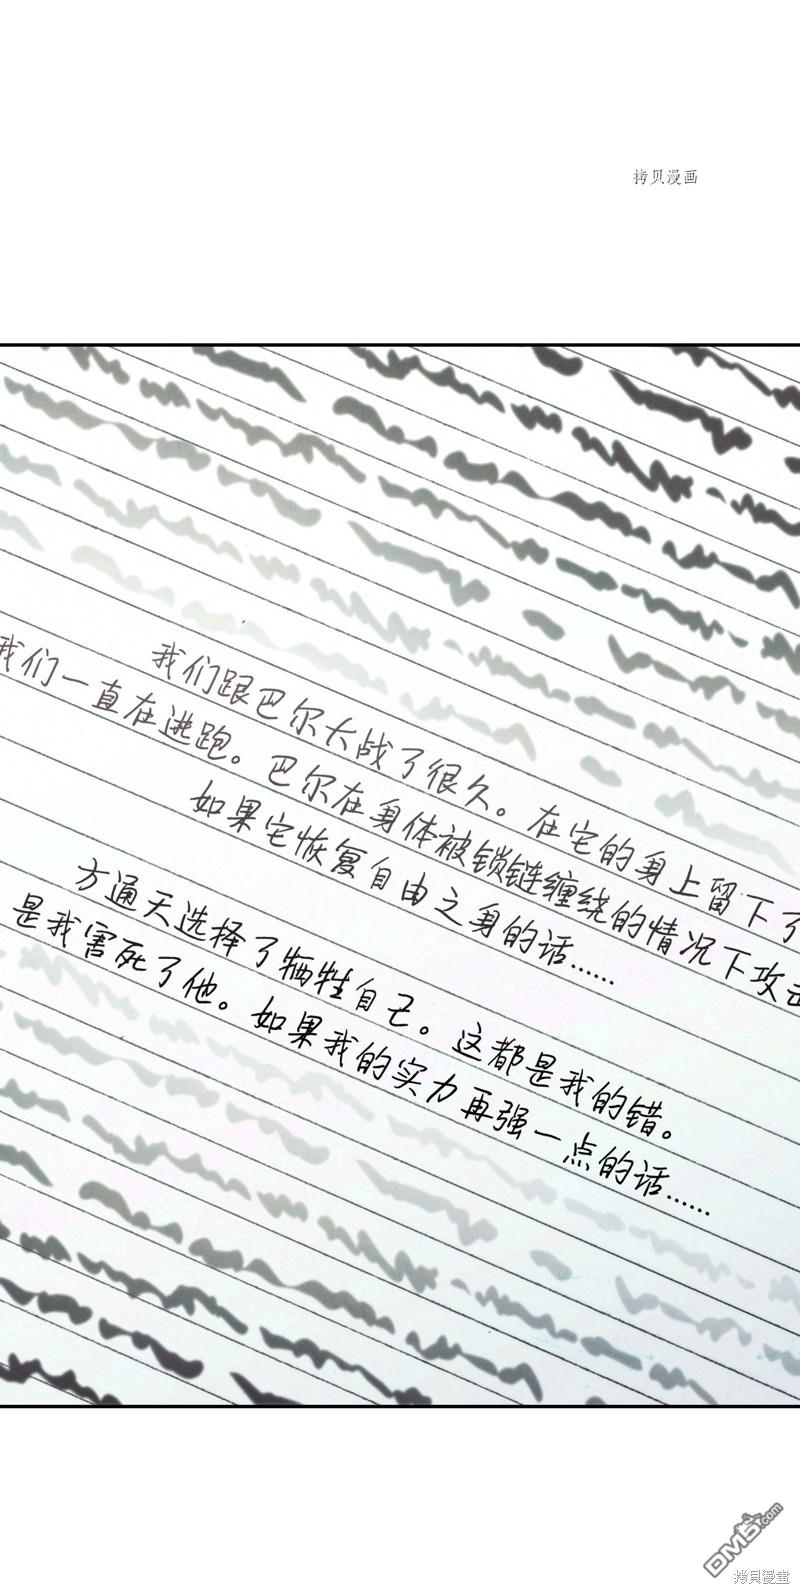 拷贝漫画
我们跟巴尔大战了很久。在它的身上留下了
我们一直在逃跑。巴尔在身体被锁链缠绕的情况下攻击
如果它恢复自由之身的话……
方通天选择了牺牲自己。这都是我的错。
是我害死了他。如果我的实力再强一点的话……
DM5.com
拷贝漫画